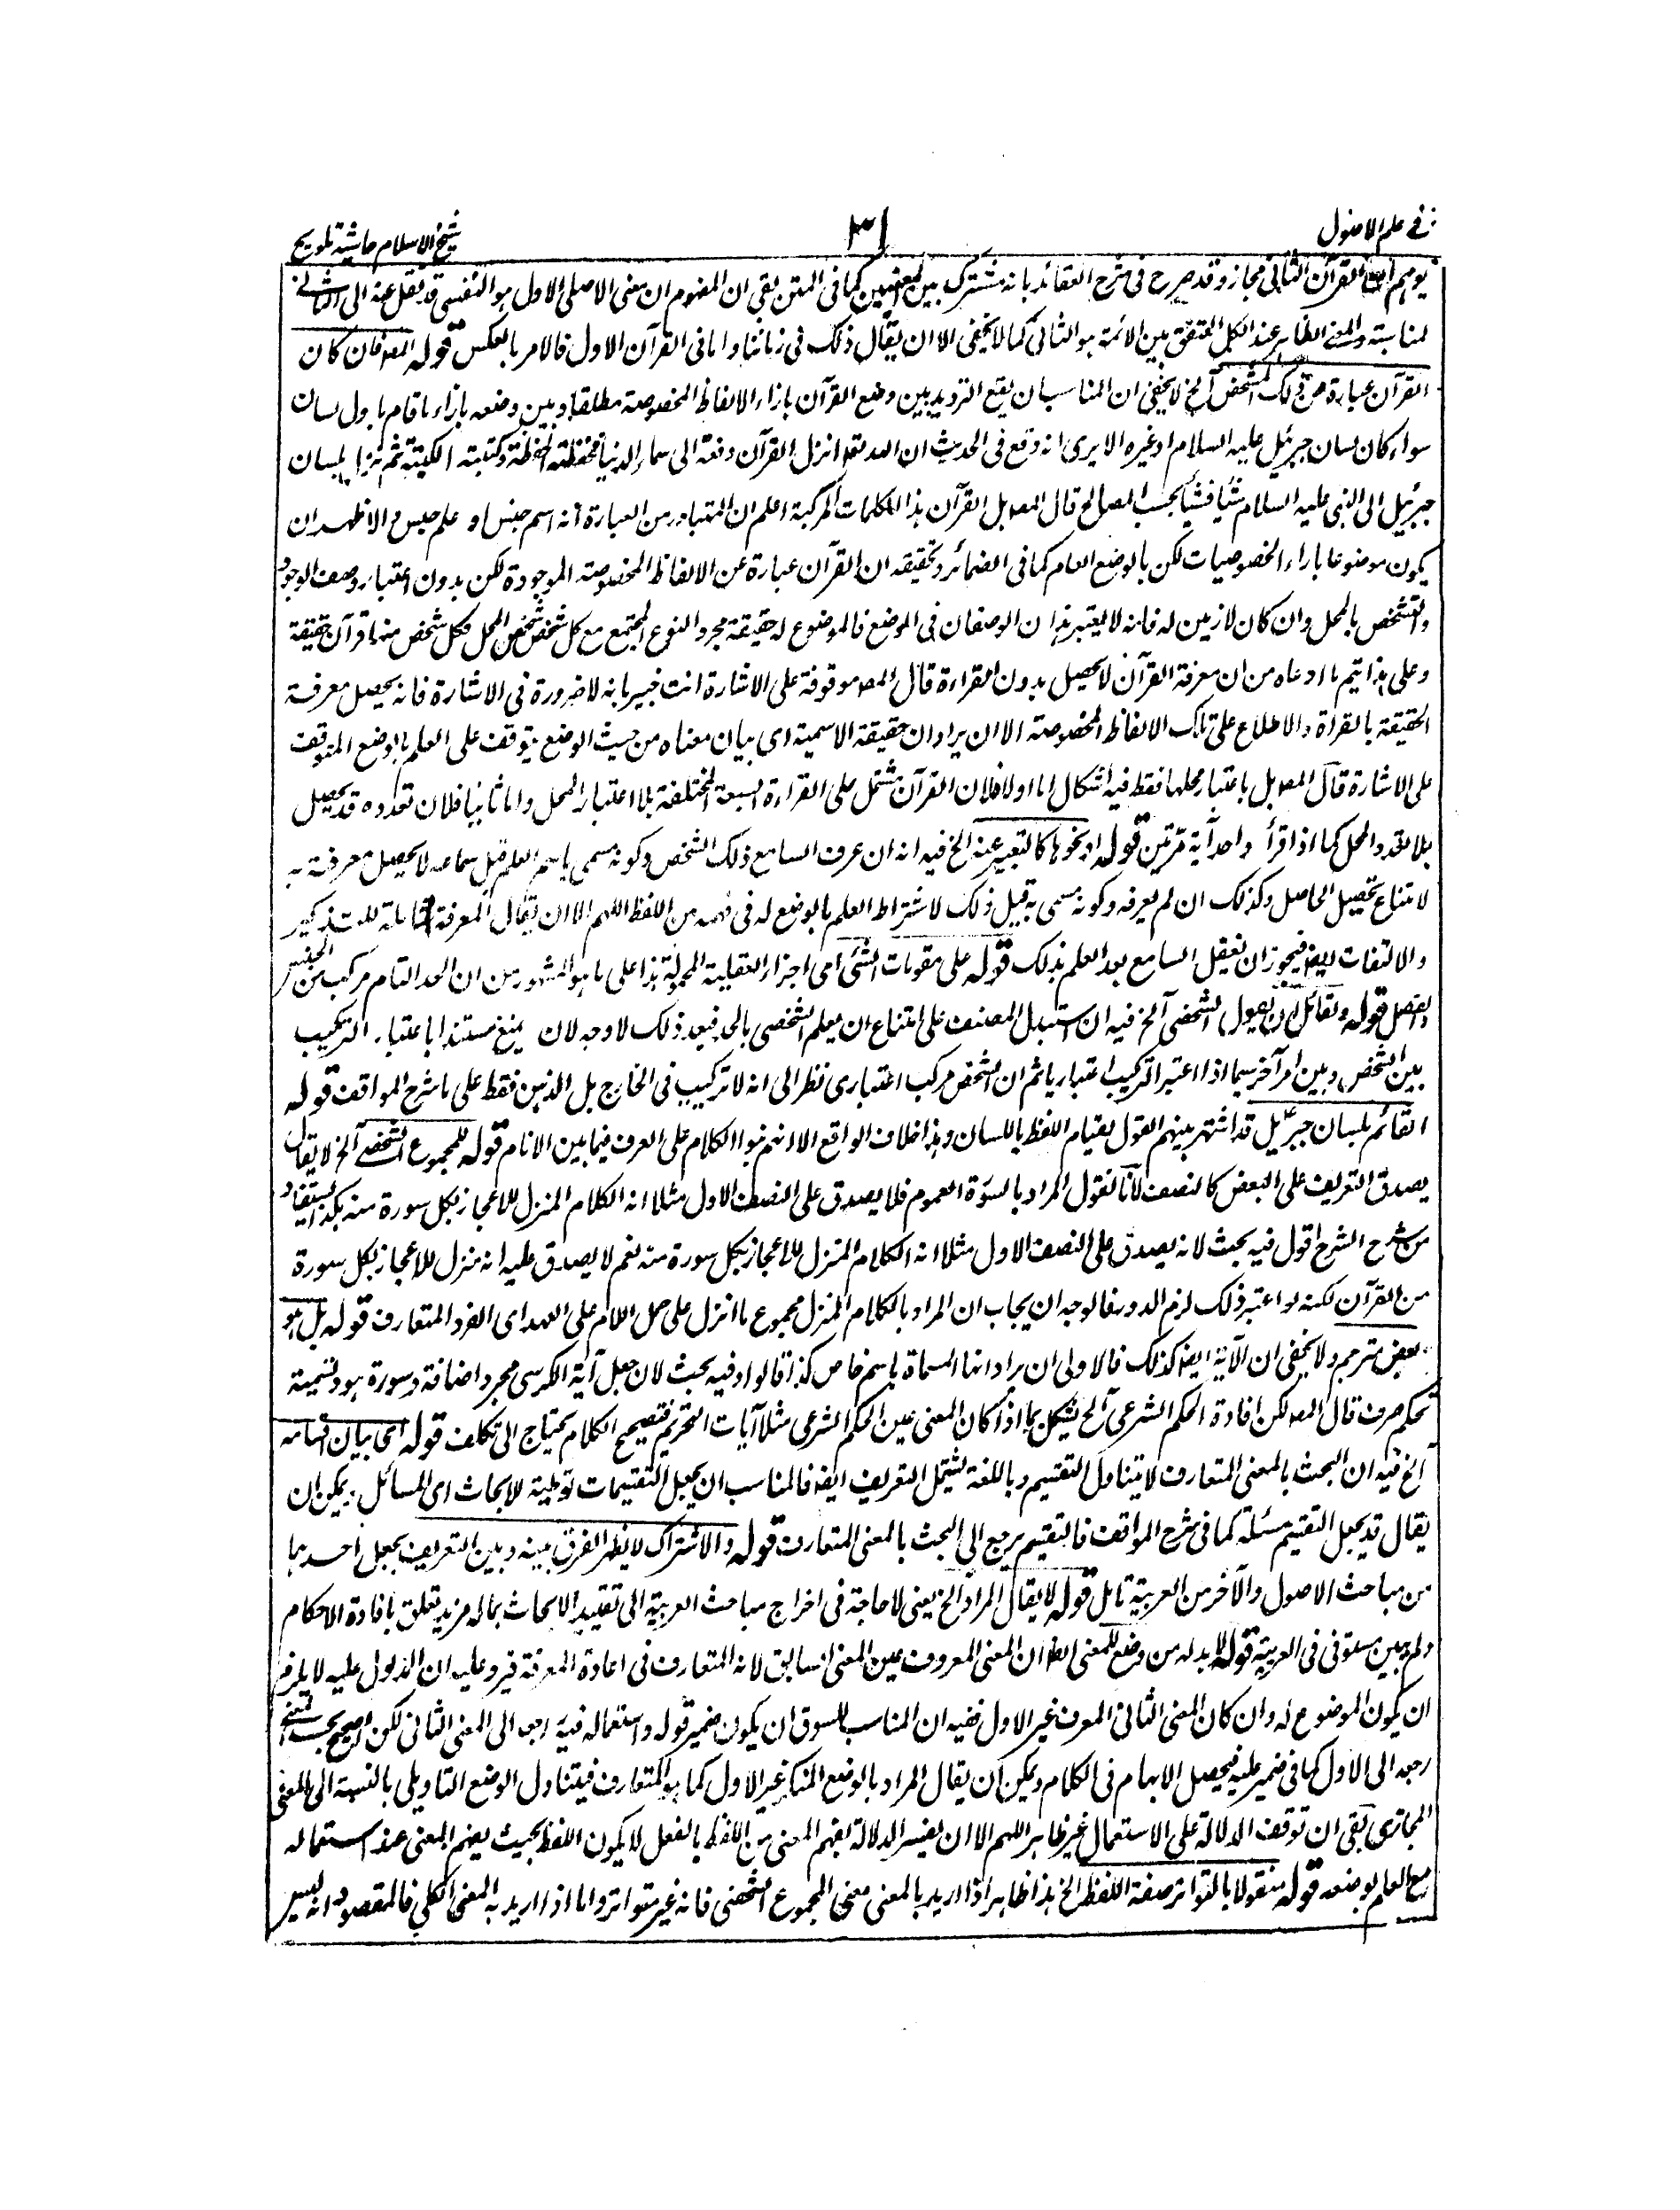 في علم الاصول
٣١
شيخ الاسلام حاشية تلويح
يوهم ان القرآن الثاني مجاز وقد صرح في شرح العقائد بانه مشترك بين المعنيين كما في المتن بقي ان المفهوم ان معنى الاصلي الاول هو النفسي قد نقل عنه الى الثاني
لمناسبته والمعنى الظاهر عند الكل المتفق بين الائمة هو الثاني كما لا يخفى الا ان يقال ذلك في زماننا واما في القرآن الاول فالامر بالعكس قوله المص فان كان
القرآن عبارة عن ذلك المشخص آلخ لا يخفى ان المناسب ان يقع الترديد بين وضع القرآن بازاء الالفاظ المخصوصة مطلقا وبين وضعه بازاء ما قام باول لسان
سواء كان لسان جبرئيل عليه السلام او غيره الا يرى انه وقع في الحديث ان الله تعالى انزل القرآن دفعة الى سماء الدنيا فحفظته الحفظة وكتبته الكتبة ثم نزل بلسان
جبرئيل الى النبي عليه السلام شيئا فشيئا بحسب المصالح قال المص بل القرآن هذا الكلمات المركبة اعلم ان المتبادر من العبارة انه اسم جنس او علم جنس والاظهر ان
يكون موضوعا بازاء الخصوصيات لكن بالوضع العام كما في الضمائر وتحقيقه ان القرآن عبارة عن الالفاظ المخصوصة الموجودة لكن بدون اعتبار وصف الوجود
والتشخص بالمحل وان كان لازمين له فانه لا يعتبر هذان الوصفان في الوضع فالموضوع له حقيقة مجرد النوع المجتمع مع كل شخص تشخص المحل فكل شخص منها قرآن حقيقة
وعلى هذا يتم ما ادعاه من ان معرفة القرآن لا يحصل بدون القراءة قال المص موقوفة على الاشارة انت خبير بانه لا ضرورة في الاشارة فانه يحصل معرفة
الحقيقة بالقراة والاطلاع على تلك الالفاظ المخصوصة الا ان يراد ان حقيقة الاسمية اى بيان معناه من حيث الوضع يتوقف على العلم بالوضع المتوقف
على الاشارة قال المص بل باعتبار محلها فقط فيه اشكال اما اولا فلان القرآن مشتمل على القراءة السبعة المختلفة بلا اعتبار المحل واما ثانيا فلان تعدده قد يحصل
بلا تعدد المحل كما اذا قرأ واحد آية مرتين قوله او نحوها كالتعبير عنه الخ فيه انه ان عرف السامع ذلك الشخص وكونه مسمى باسم العلم قبل سماعه لا يحصل معرفة به
لامتناع تحصيل الحاصل وكذلك ان لم يعرفه وكونه مسمى به قبل ذلك لاشتراط العلم بالوضع له في فهمه من اللفظ اللهم الا ان يقال المعرفة شاملة للتذكير
والالتفات ايضا فيجوز ان يغفل السامع بعد العلم بذلك قوله على مقومات الشئ اى اجزاء العقلية المحمولة هذا على ما هو المشهور من ان الحد التام مركب من الجنس
والفصل قوله ولقائل ان يقول الشخصى آلخ فيه ان استدل المصنف على امتناع ان يعلم الشخصى بالحد فبعد ذلك لا وجه لان يمنع مستندا باعتبار التركيب
بين الشخص وبين امر آخر سيما اذا اعتبر التركيب اعتباريا ثم ان الشخص مركب اعتبارى نظر الى انه لا تركيب في الخارج بل الذهن فقط على ما شرح المواقف قوله
القائم بلسان جبرئيل قد اشتهر بينهم القول بقيام اللفظ باللسان وهذا خلاف الواقع الا انهم بنوا الكلام على العرف فيما بين الانام قوله للمجموع الشخصى آلخ لا يقال
يصدق التعريف على البعض كالنصف لانا نقول المراد بالسورة العموم فلا يصدق على النصف الاول مثلا انه الكلام المنزل للاعجاز بكل سورة منه هكذا يستفاد
من شرح الشرح اقول فيه بحث لانه يصدق على النصف الاول مثلا انه الكلام المنزل للاعجاز بكل سورة منه نعم لا يصدق عليه انه منزل للاعجاز بكل سورة
من القرآن لكنه لو اعتبر ذلك لزم الدور فالوجه ان يجاب ان المراد بالكلام المنزل مجموع ما انزل على حمل اللام على العهد اى الفرد المتعارف قوله بل هو
بعض مترجم ولا يخفى ان الآية ايضا كذلك فالاولى ان يراد انها المسماة باسم خاص كذا قالوا وفيه بحث لان جعل آية الكرسى مجرد اضافة وسورة هود تسمية
تحكم صرف قال المص لكن افادة الحكم الشرعى آلخ يشكل بما اذا كان المعنى عين الحكم الشرعى مثلا آيات التحريم فتصحيح الكلام يحتاج الى تكلف قوله اى بيان اقسامه
آلخ فيه ان البحث بالمعنى المتعارف لا يتناول التقسيم وباللغة يشتمل التعريف ايضا فالمناسب ان يجعل التقسيمات توطية للابحاث اى المسائل ويمكن ان
يقال قد يجعل التقسيم مسئلة كما في شرح المواقف فالتقسيم يرجع الى البحث بالمعنى المتعارف قوله والاشتراك لا يظهر الفرق بينه وبين التعريف بجعل احدهما
من مباحث الاصول والآخر من العربية تامل قوله لا يقال المراد الخ يعنى لا حاجة في اخراج مباحث العربية الى تقييد الابحاث بماله مزيد تعلق بافادة الاحكام
ولم يبين مستوفى في العربية قوله لا بد له من وضع للمعنى الظاهر ان المعنى المعروف عين المعنى السابق لانه المتعارف في اعادة المعرفة فيرد عليه ان المدلول عليه لا يلزم
ان يكون الموضوع له وان كان المعنى الثانى المعرف غير الاول ففيه ان المناسب للسوق ان يكون ضمير قوله واستعماله فيه راجعا الى المعنى الثانى لكن الصحيح بحسب المعنى
رجعه الى الاول كما في ضمير عليه فيحصل الابهام في الكلام ويمكن ان يقال المراد بالوضع المنكر غير الاول كما هو المتعارف فيتناول الوضع التاويلى بالنسبة الى المعنى
المجازى بقى ان توقف الدلالة على الاستعمال غير ظاهر اللهم الا ان يفسر الدلالة بفهم المعنى من اللفظ بالفعل لا بكون اللفظ بحيث يفهم المعنى عند استعماله
مع العلم بوضعه قوله منقولا بالتواتر صفة اللفظ الخ هذا ظاهر اذا اريد بالمعنى معنى المجموع الشخصى فانه غير متواتر واما اذا اريد به المعنى الكلى فالمقصود انه ليس